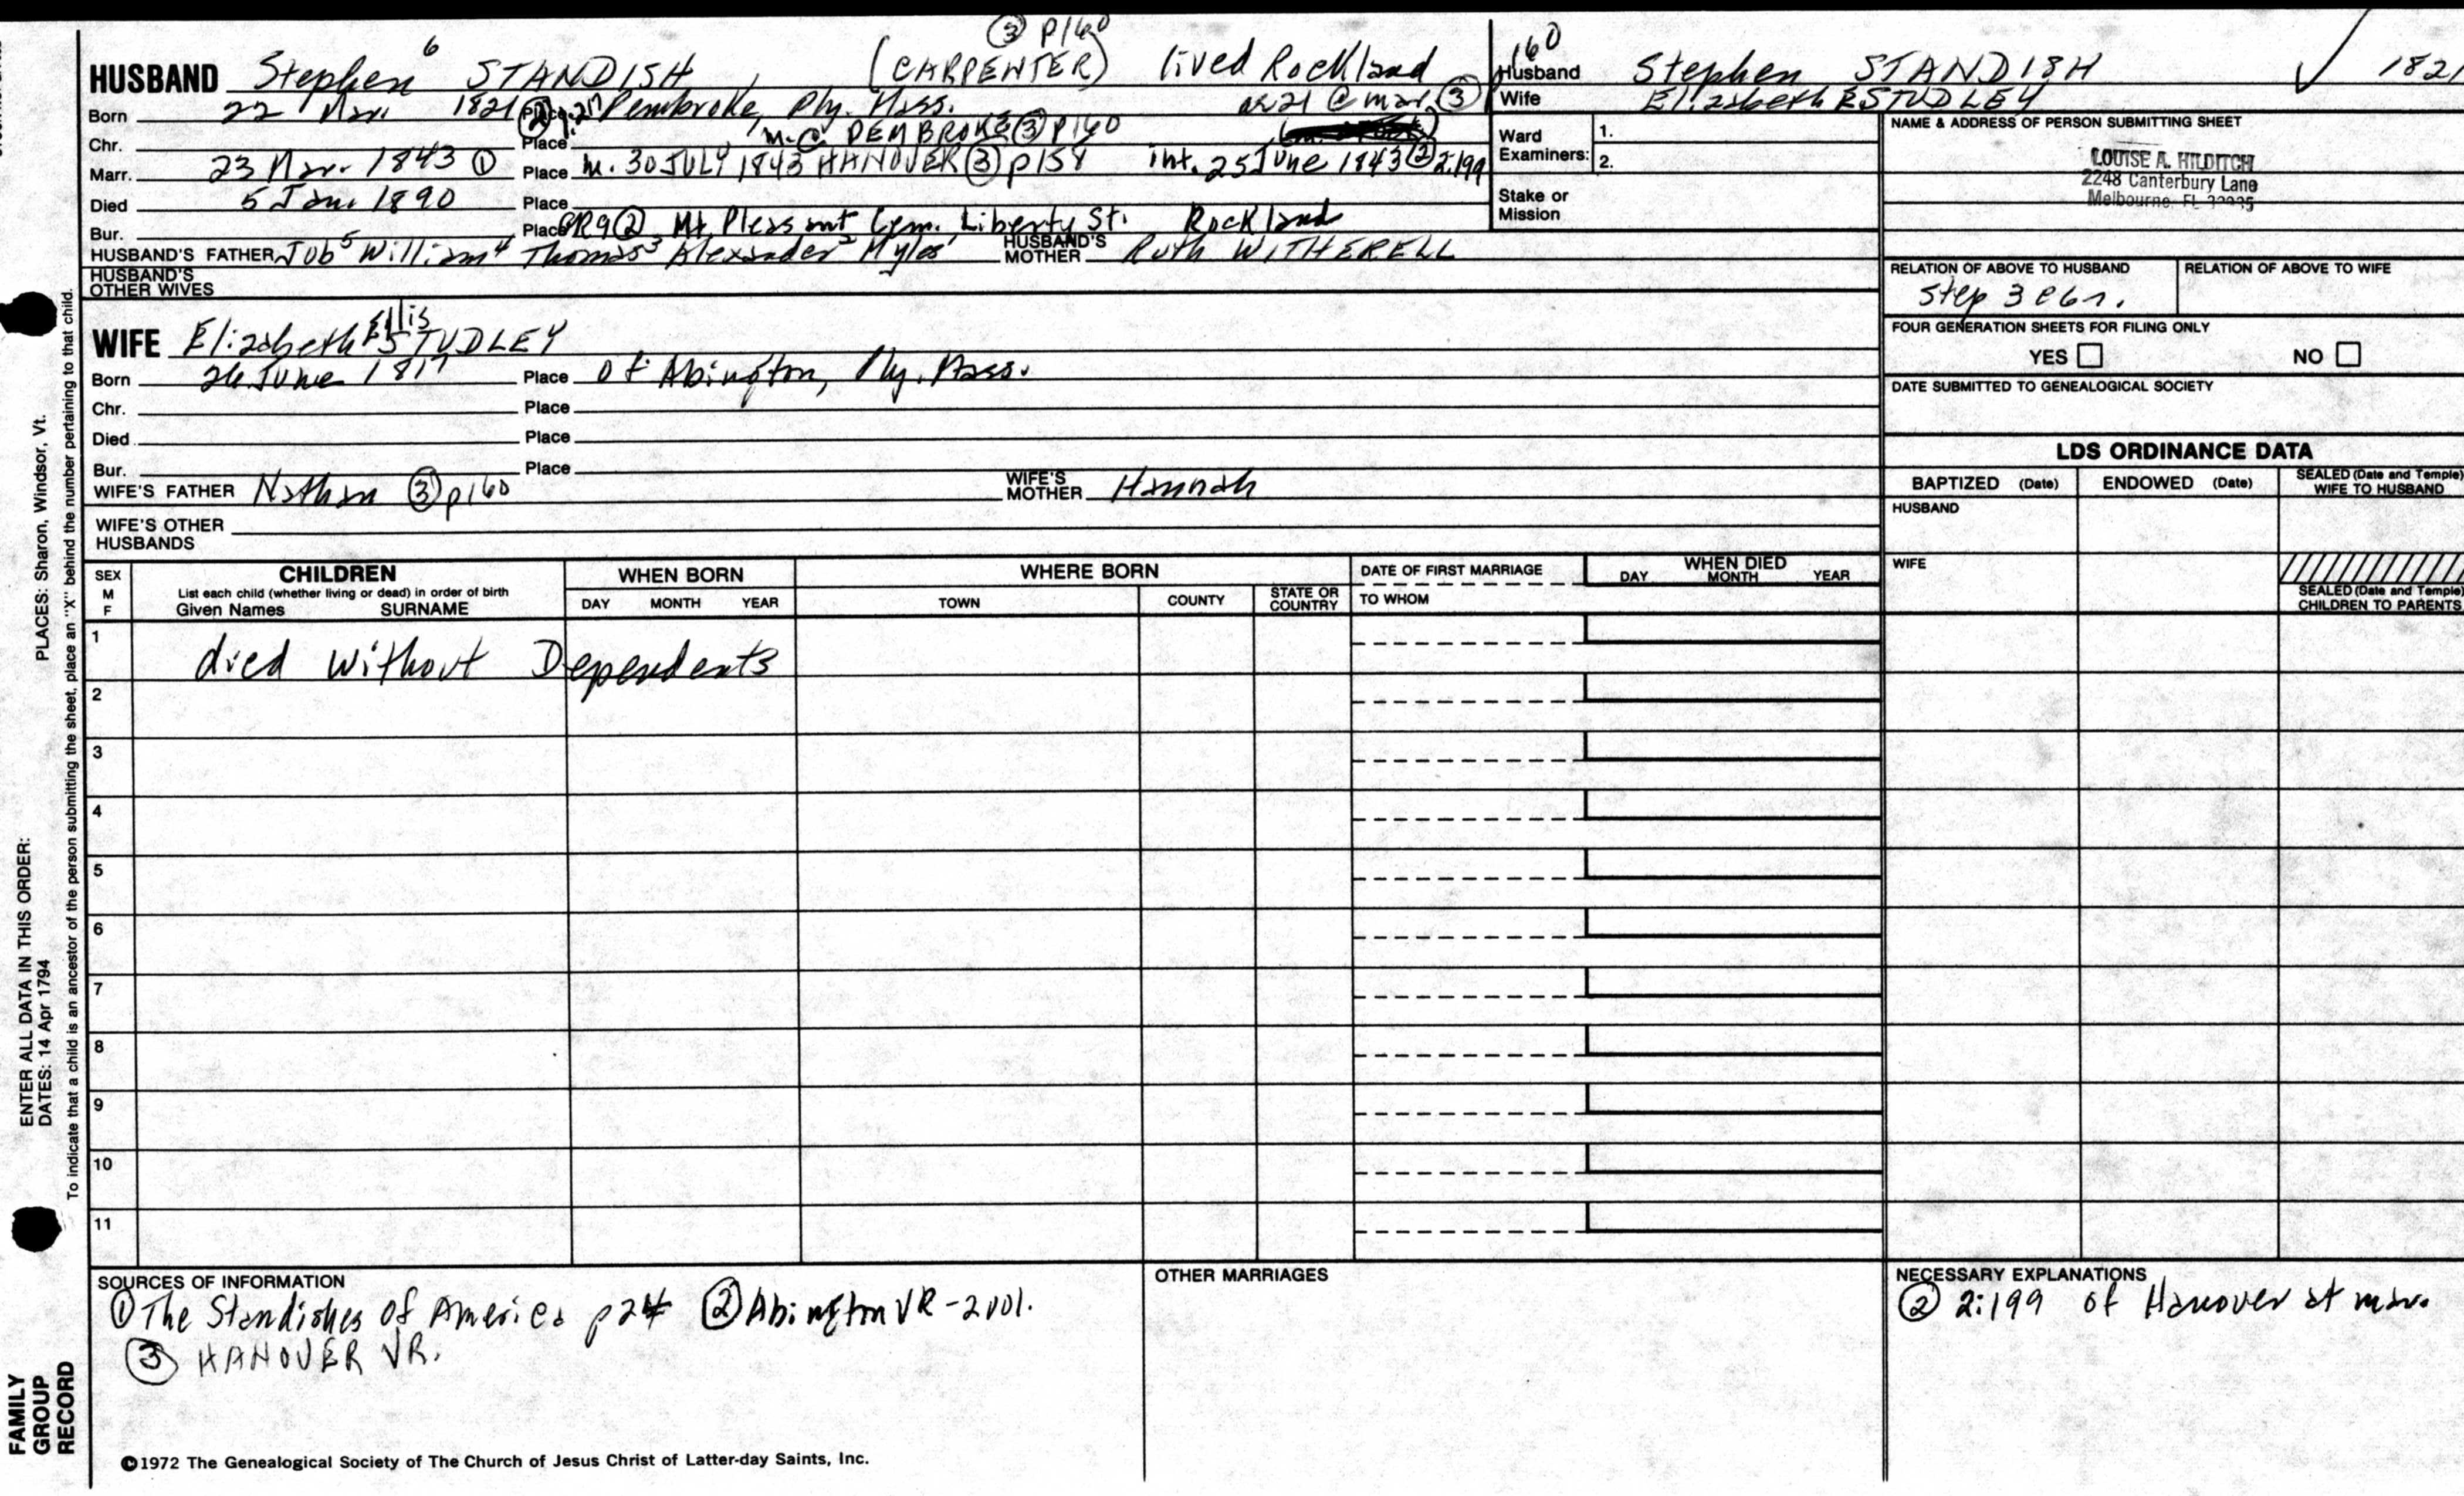 ③ p160
HUSBAND Stephen 6 STANDISH, (CARPENTER) lived Rockland
Born 22 Mar. 1821 Place Pembroke, Ply. Mass. ae 21 @ mar. ③
Chr. Place m. @ PEMBROKE ③ p160
Marr. 23 Nov. 1843 ① Place m. 30 JULY 1843 HANOVER ③ p158 int. 25 June 1843 ② 2:199
Died 5 Jan. 1890 Place
Bur. Place GR9 ② Mt. Pleasant Cem. Liberty St. Rockland
HUSBAND'S FATHER Job 5 William 4 Thomas 3 Alexander 2 Myles 1 HUSBAND'S MOTHER Ruth WITHERELL
HUSBAND'S OTHER WIVES
WIFE Elizabeth Ellis STUDLEY
Born 26 June 1817 Place of Abington, Ply. Mass.
Chr. Place
Died Place
Bur. Place
WIFE'S FATHER Nathan ③ p160 WIFE'S MOTHER Hannah
WIFE'S OTHER HUSBANDS
160
Husband Stephen STANDISH ✓ 1821
Wife Elizabeth E STUDLEY
Ward Examiners: 1.
2.
Stake or Mission
NAME & ADDRESS OF PERSON SUBMITTING SHEET
LOUISE A. HILDITCH
2248 Canterbury Lane
Melbourne, FL
RELATION OF ABOVE TO HUSBAND RELATION OF ABOVE TO WIFE
Step 3
FOUR GENERATION SHEETS FOR FILING ONLY
YES NO
DATE SUBMITTED TO GENEALOGICAL SOCIETY
LDS ORDINANCE DATA
BAPTIZED (Date) ENDOWED (Date) SEALED (Date and Temple) WIFE TO HUSBAND
HUSBAND
WIFE
SEALED (Date and Temple) CHILDREN TO PARENTS
SEX M F
CHILDREN
List each child (whether living or dead) in order of birth
Given Names SURNAME
WHEN BORN
DAY MONTH YEAR
WHERE BORN
TOWN COUNTY STATE OR COUNTRY
DATE OF FIRST MARRIAGE
TO WHOM
WHEN DIED
DAY MONTH YEAR
1 died without Dependents
2
3
4
5
6
7
8
9
10
11
SOURCES OF INFORMATION
① The Standishes of America p 24 ② Abington VR - 2 vol.
③ HANOVER VR.
OTHER MARRIAGES
NECESSARY EXPLANATIONS
② 2:199 of Hanover at mar.
©1972 The Genealogical Society of The Church of Jesus Christ of Latter-day Saints, Inc.
FAMILY GROUP RECORD
ENTER ALL DATA IN THIS ORDER:
DATES: 14 Apr 1794
PLACES: Sharon, Windsor, Vt.
To indicate that a child is an ancestor of the person submitting the sheet, place an "X" behind the number pertaining to that child.